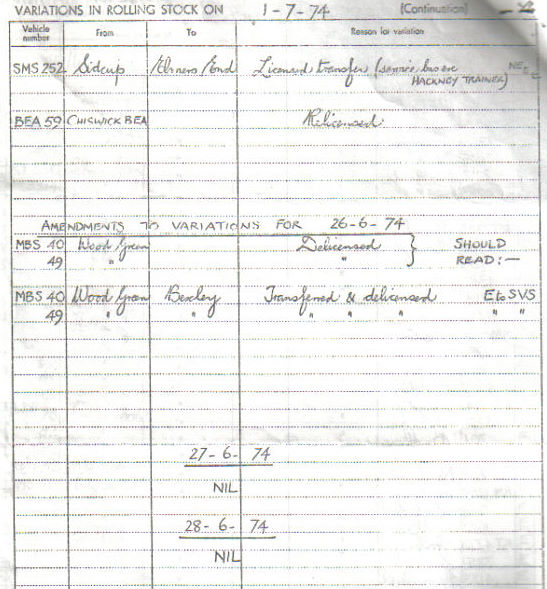 VARIATIONS IN ROLLING STOCK ON 1-7-74 (Continuation)
Vehicle number From To Reason for variation
SMS 252 Sidcup Elmers End Licensed, transfer (service bus ex
HACKNEY TRAINER)
BEA 59 CHISWICK BEA Relicensed
AMENDMENTS TO VARIATIONS FOR 26-6-74
MBS 40 Wood Green Delicensed } SHOULD
49 " " READ:—
MBS 40 Wood Green Bexley Transferred & delicensed E to SVS
49 " " " " " " "
27-6-74
NIL
28-6-74
NIL